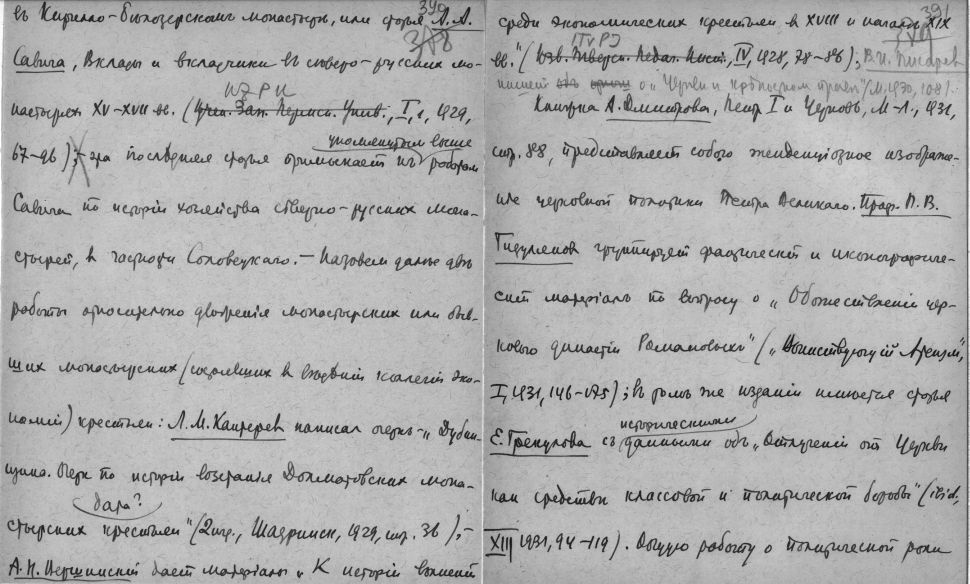 349
въ Кирилло-Бѣлозерскомъ монастырѣ, или статья А. А.
Савича, Вклады и вкладчики въ сѣверо-русских мо-
настырях XV-XVII вв. (Учен. Зап. Пермск. Унив., I, 1929,
упомянутым выше
67-96); эта последняя статья примыкает къ работам
Савича по исторіи хозяйства сѣверно-русских мона-
стырей, въ частности Соловецкаго. – Назовем далѣе двѣ
работы относительно движенія монастырских или быв-
ших монастырских (состоявших в вѣдѣніи коллегіи эко-
номіи) крестьян: Л. М. Каптерев написал очерк „Дубин-
щина. Очерк по исторіи возстанія Долматовских мона-
дата?
стырских крестьян" (2 изд., Шадринск, 1929, стр. 36);-
А. Н. Вершинский дает матеріалы „К исторіи волненій
391
среди экономических крестьян в XVIII и началѣ XIX
вв." (Изв. Тверск. Педаг. Инст., IV, 1928, 78-86); В. И. Писарев
пишет о „Церкви и крѣпостном правѣ" (М, 1930, 108).
Книжка А. Дмитрева, Петр I и Церковь, М-Л., 1931,
стр. 88, представляет собою тенденціозное изображе-
ніе церковной политики Петра Великаго. Проф. П. В.
Гидулянов группирует фактическій и иконографиче-
скій матеріалъ по вопросу о „Обожествленіи цер-
ковью династіи Романовых" („Воинствующій Атеизм",
I, 1931, 146-175); в том же изданіи имѣется статья
историческими
Е. Грекулова съ данными объ „Отлученіи от Церкви
как средствѣ классовой и политической борьбы" (ibid.
XII 1931, 94-119). Общую работу о политической роли